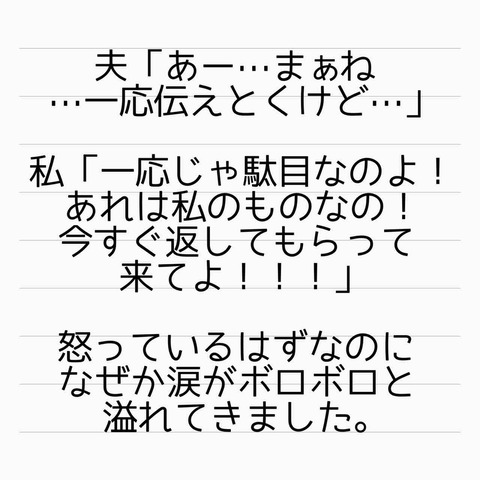 夫「あー…まぁね
…一応伝えとくけど…」
私「一応じゃ駄目なのよ！
あれは私のものなの！
今すぐ返してもらって
来てよ！！！」
怒っているはずなのに
なぜか涙がボロボロと
溢れてきました。